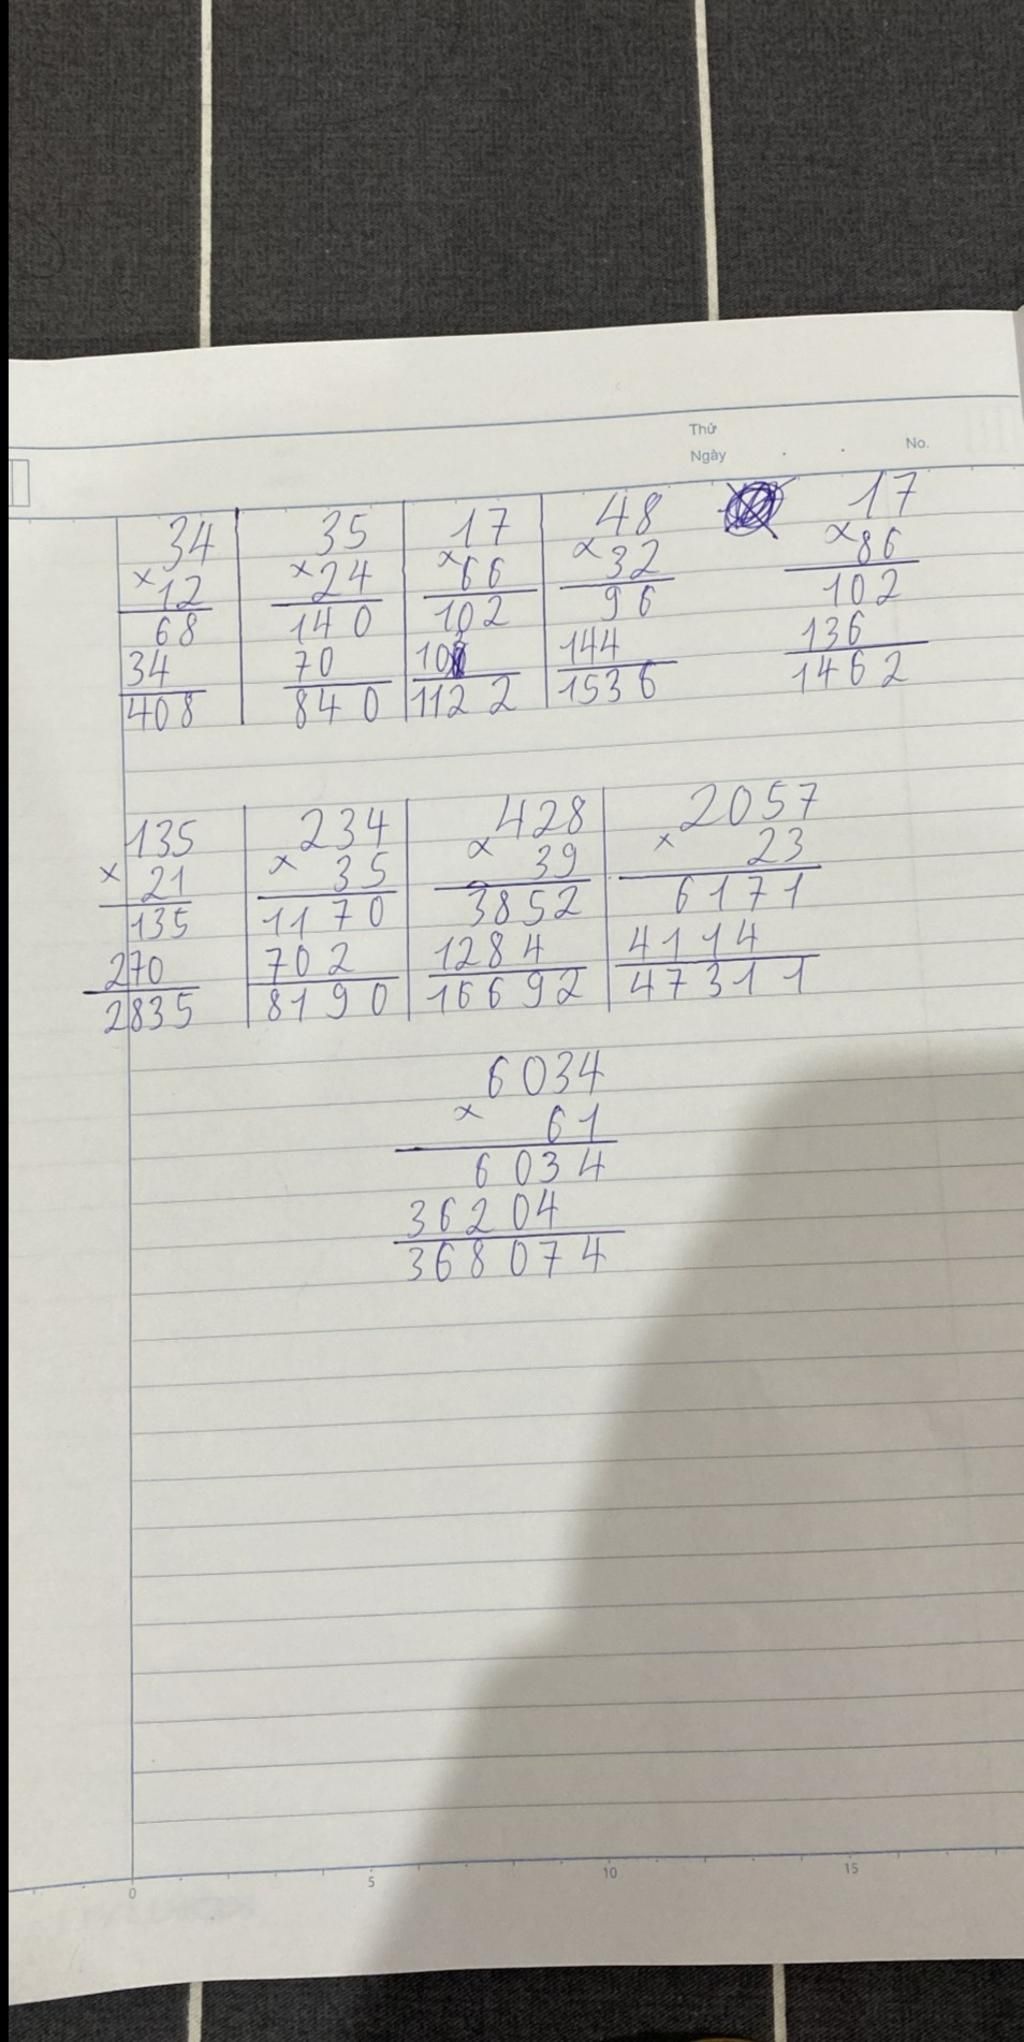 Thứ
Ngày . . No.
34 35 17 48 17
×12 ×24 ×66 ×32 ×86
68 140 102 96 102
34 70 102 144 136
408 840 1122 1536 1462
135 234 428 2057
× 21 × 35 × 39 × 23
135 1170 3852 6171
270 702 1284 4114
2835 8190 16692 47311
6034
× 61
6034
36204
368074
0 5 10 15